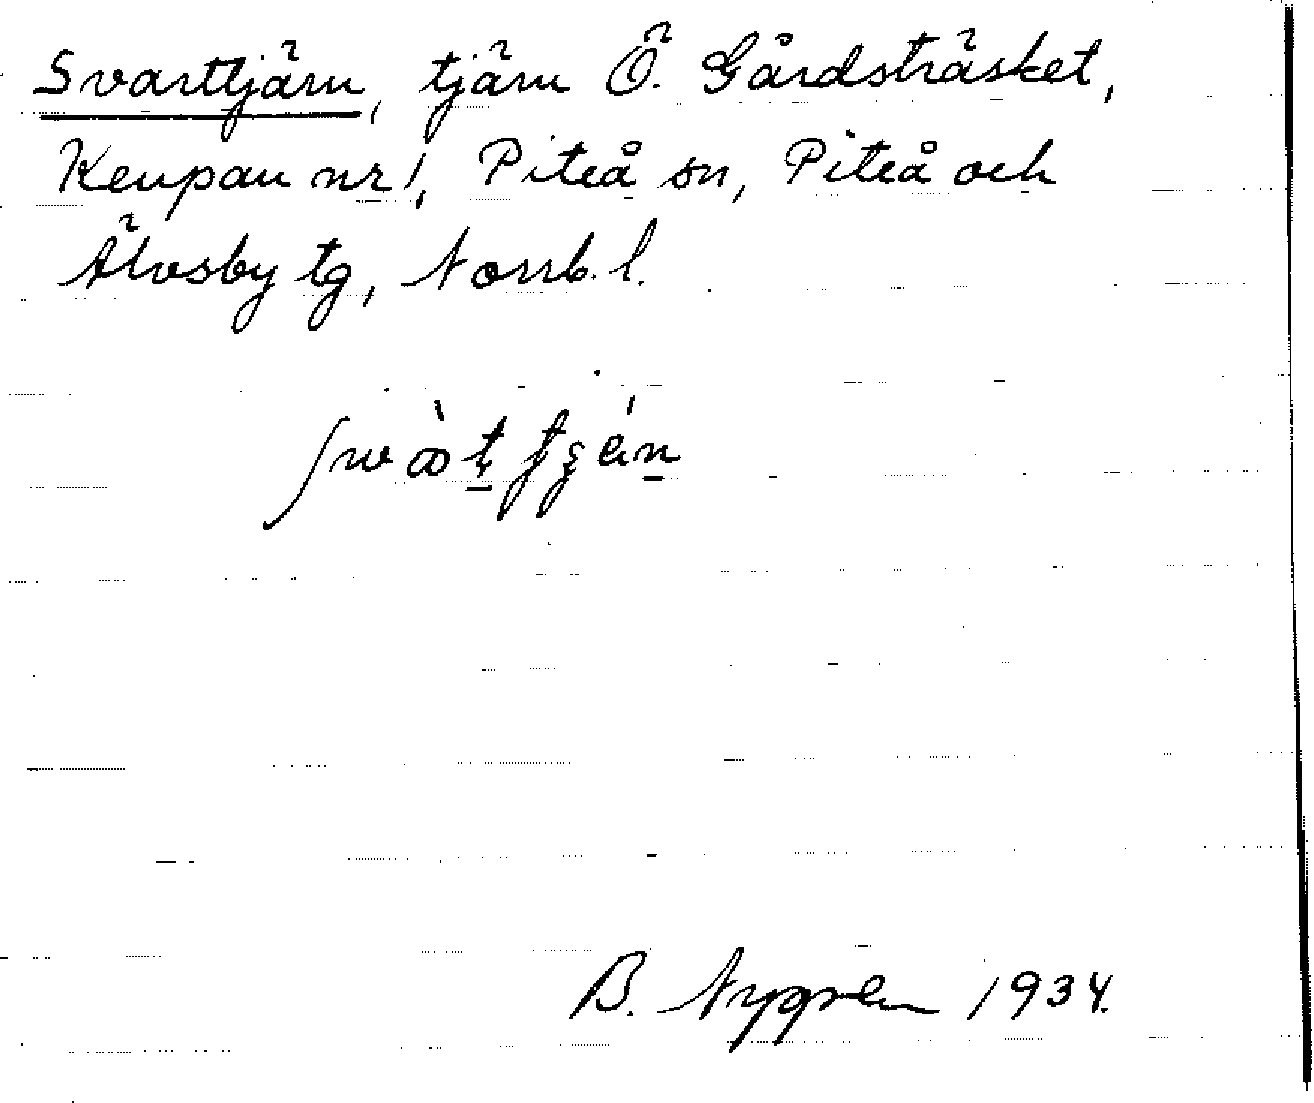 Svarttjärn, tjärn Ö. Gårdsträsket,
Keupau nr 1, Piteå sn, Piteå och
Älvsby tg, Norrb. l.
B. Nygren 1934.